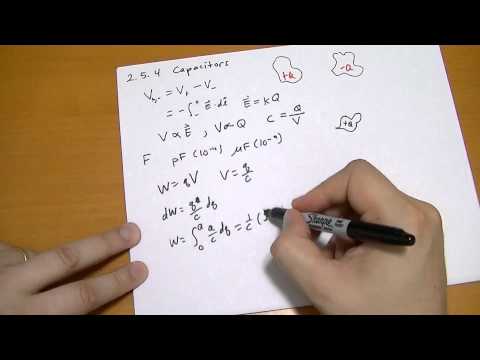 2.5.4 Capacitors
V = V₊ - V₋
= -∫₋⁺ E⃗·dl⃗ E⃗ = kQ
V ∝ E⃗, V ∝ Q C = Q/V
F pF (10⁻¹²) μF (10⁻⁶)
W = qV V = q/C
dW = q/C dq
W = ∫₀ᵠ q/C dq = 1/C (
+Q
-Q
+Q
Sharpie